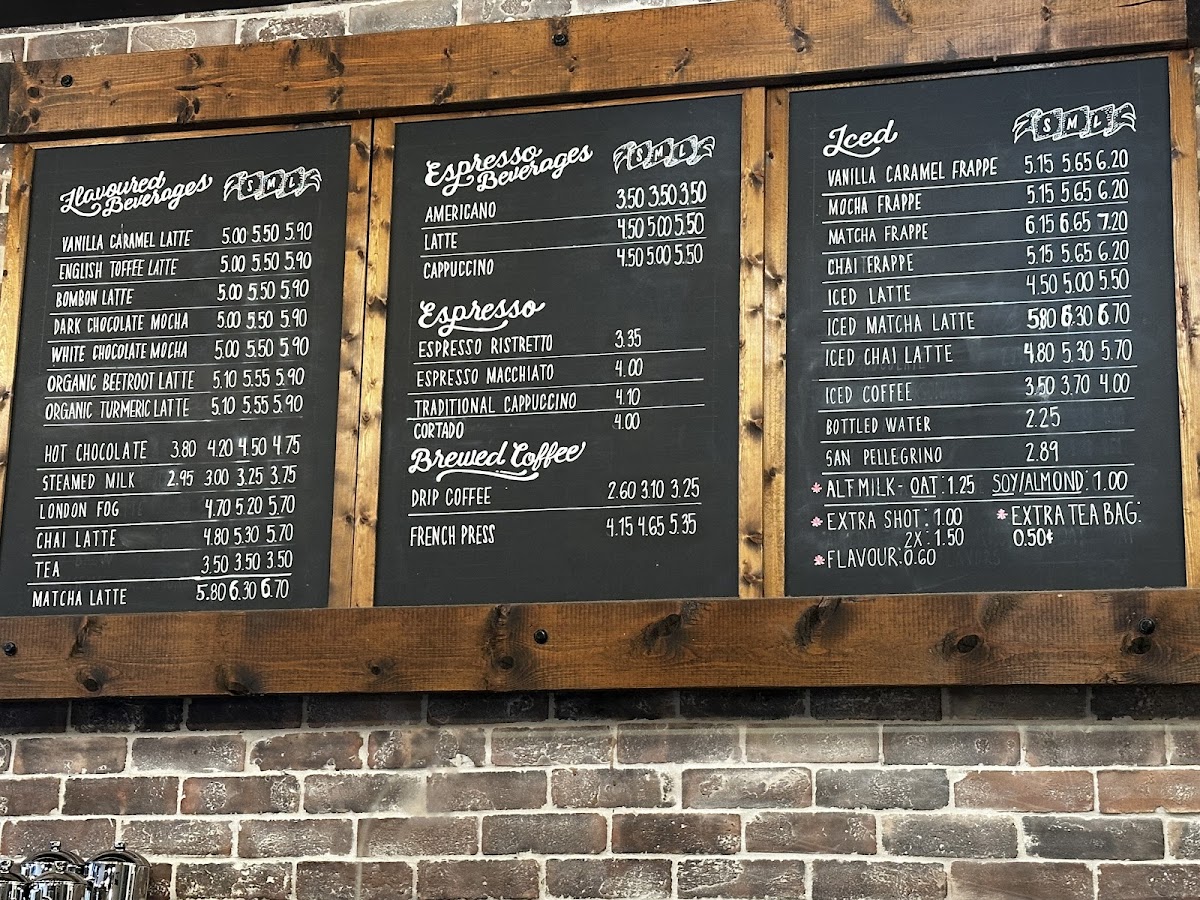 Flavoured Beverages S M L
VANILLA CARAMEL LATTE 5.00 5.50 5.90
ENGLISH TOFFEE LATTE 5.00 5.50 5.90
BOMBON LATTE 5.00 5.50 5.90
DARK CHOCOLATE MOCHA 5.00 5.50 5.90
WHITE CHOCOLATE MOCHA 5.00 5.50 5.90
ORGANIC BEETROOT LATTE 5.10 5.55 5.90
ORGANIC TURMERIC LATTE 5.10 5.55 5.90
HOT CHOCOLATE 3.80 4.20 4.50 4.75
STEAMED MILK 2.95 3.00 3.25 3.75
LONDON FOG 4.70 5.20 5.70
CHAI LATTE 4.80 5.30 5.70
TEA 3.50 3.50 3.50
MATCHA LATTE 5.80 6.30 6.70
Espresso Beverages S M L
AMERICANO 3.50 3.50 3.50
LATTE 4.50 5.00 5.50
CAPPUCCINO 4.50 5.00 5.50
Espresso
ESPRESSO RISTRETTO 3.35
ESPRESSO MACCHIATO 4.00
TRADITIONAL CAPPUCCINO 4.10
CORTADO 4.00
Brewed Coffee
DRIP COFFEE 2.60 3.10 3.25
FRENCH PRESS 4.15 4.65 5.35
Iced S M L
VANILLA CARAMEL FRAPPE 5.15 5.65 6.20
MOCHA FRAPPE 5.15 5.65 6.20
MATCHA FRAPPE 6.15 6.65 7.20
CHAI FRAPPE 5.15 5.65 6.20
ICED LATTE 4.50 5.00 5.50
ICED MATCHA LATTE 5.80 6.30 6.70
ICED CHAI LATTE 4.80 5.30 5.70
ICED COFFEE 3.50 3.70 4.00
BOTTLED WATER 2.25
SAN PELLEGRINO 2.89
* ALT MILK - OAT: 1.25 SOY/ALMOND: 1.00
* EXTRA SHOT: 1.00 * EXTRA TEA BAG:
2X: 1.50 0.50¢
* FLAVOUR: 0.60